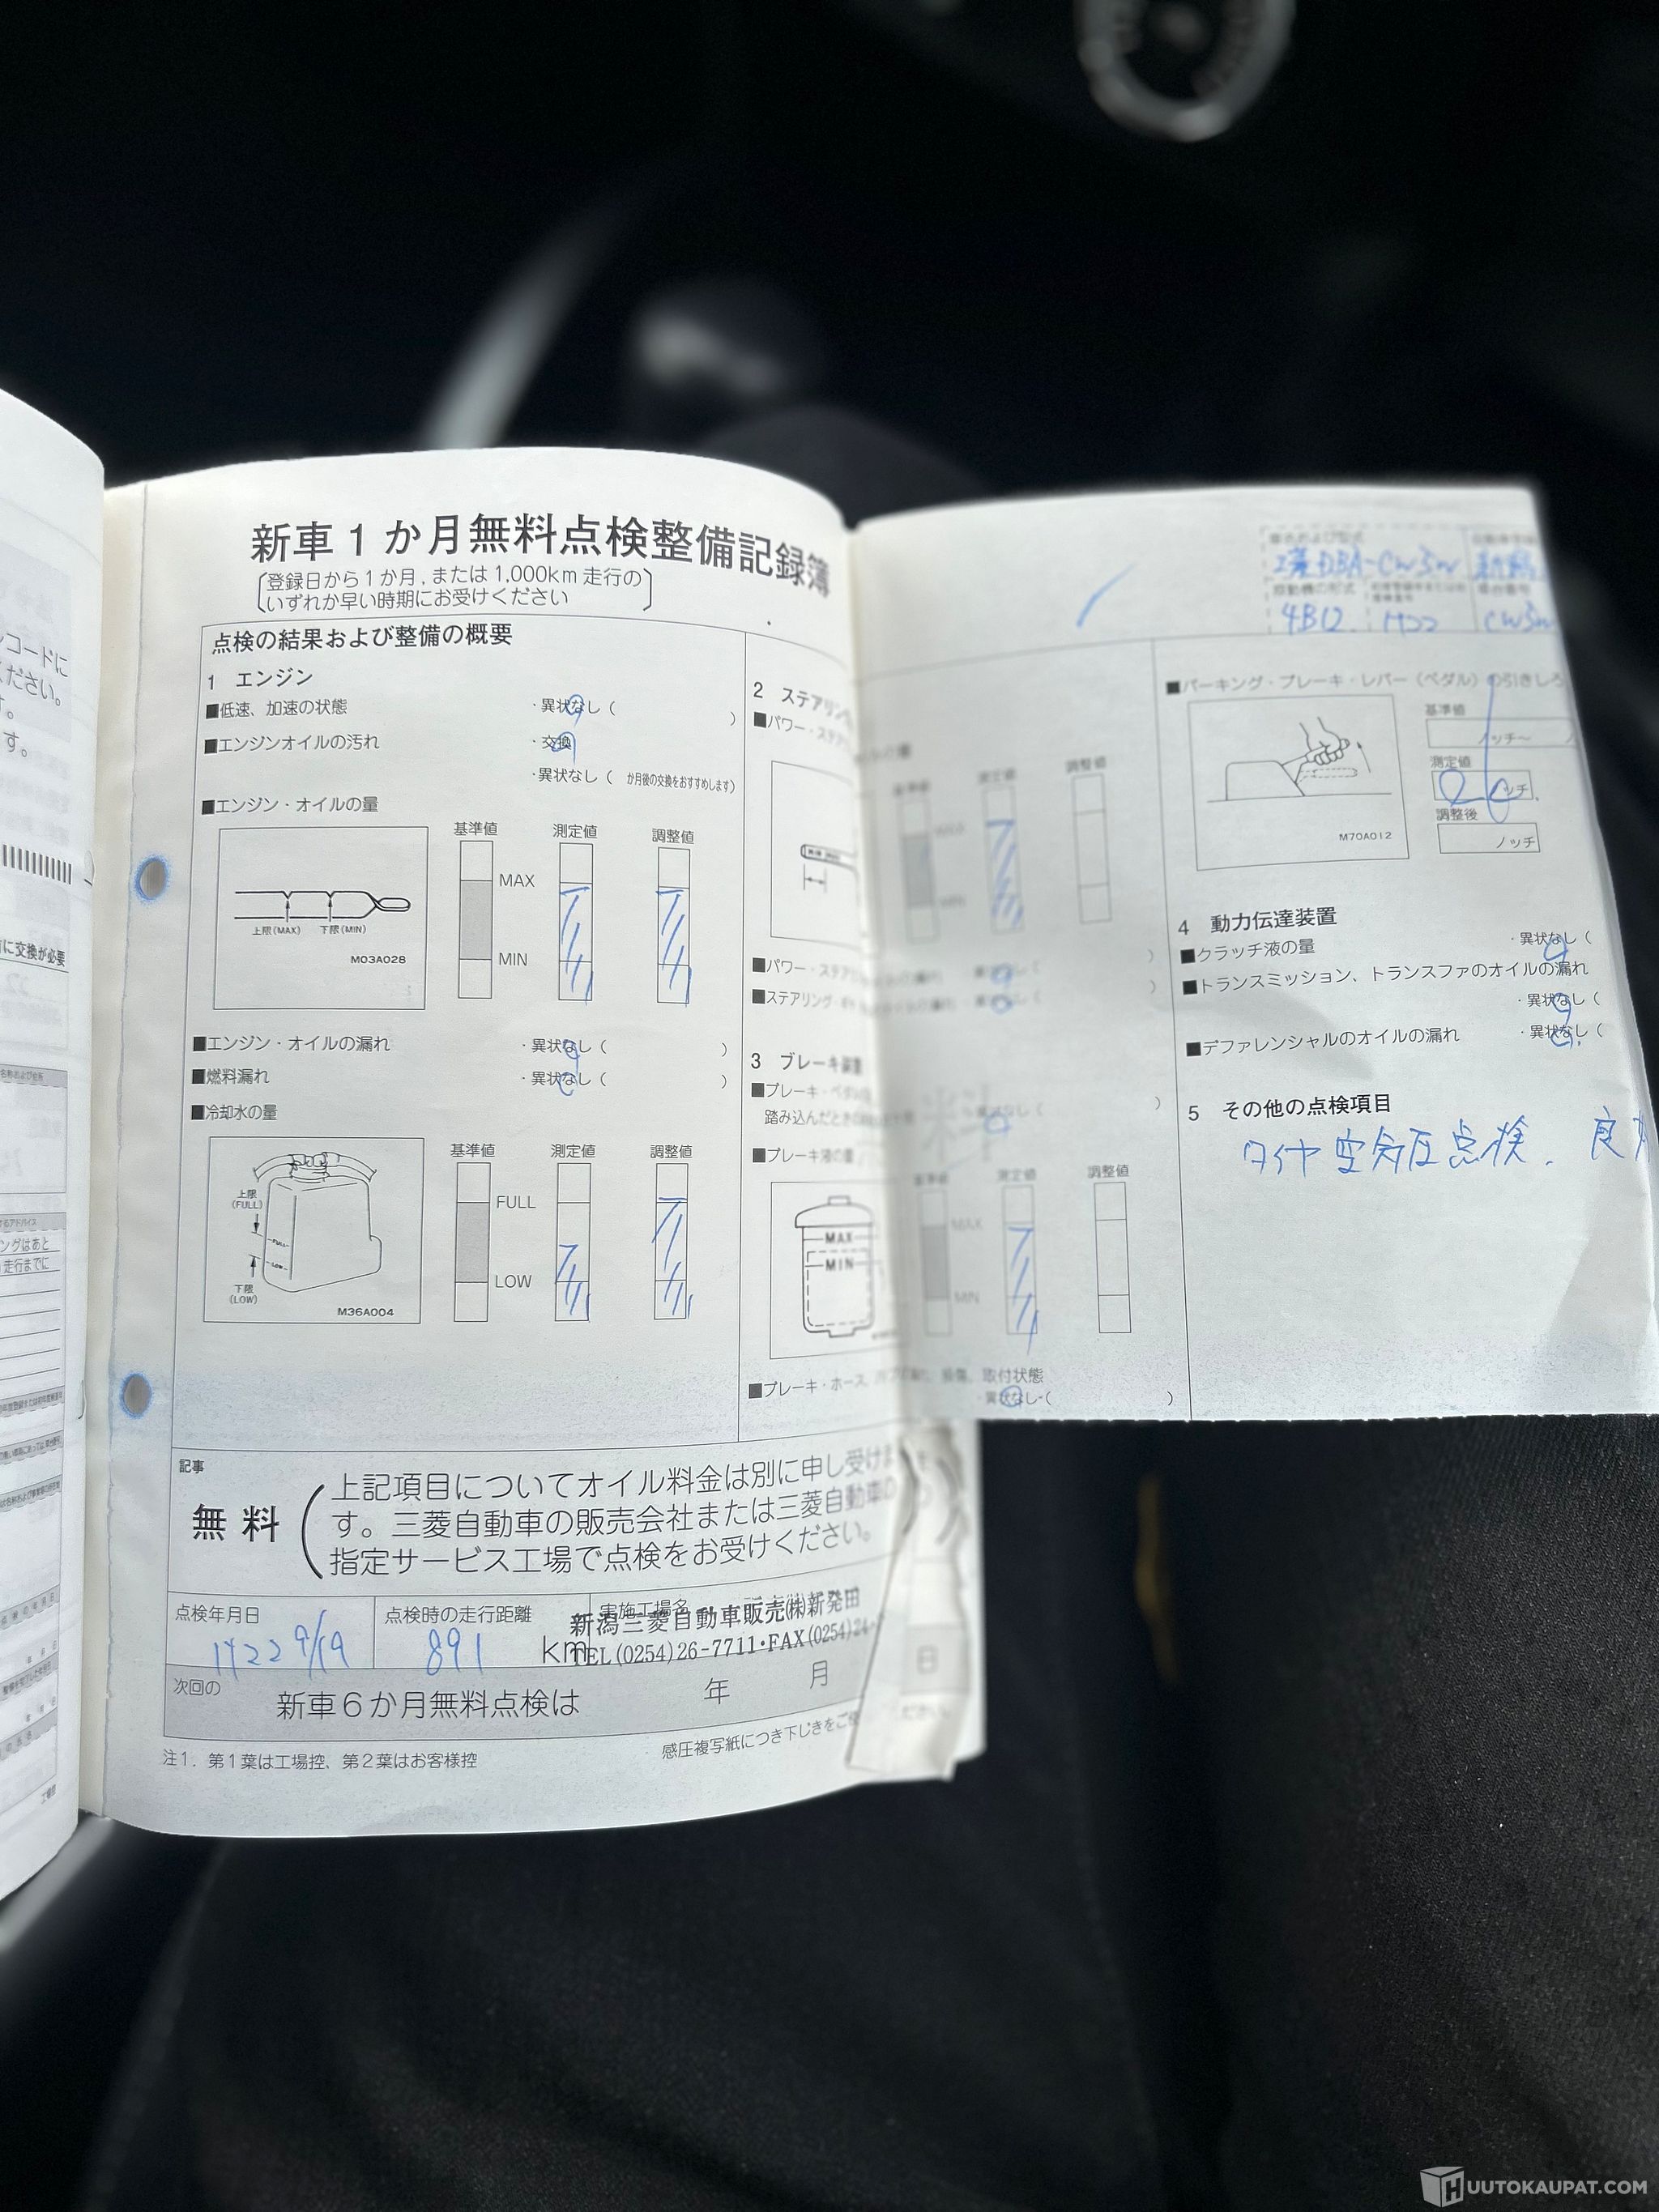 新車１か月無料点検整備記録簿
登録日から１か月，または 1,000km 走行の
いずれか早い時期にお受けください
点検の結果および整備の概要
1 エンジン
■低速、加速の状態 ・異状なし（ ）
■エンジンオイルの汚れ ・交換
・異状なし（ か月後の交換をおすすめします）
■エンジン・オイルの量
基準値 測定値 調整値
MAX
MIN
上限(MAX) 下限(MIN)
M03A028
■エンジン・オイルの漏れ ・異状なし（ ）
■燃料漏れ ・異状なし（ ）
■冷却水の量
基準値 測定値 調整値
上限
(FULL)
FULL
LOW
下限
(LOW)
M36A004
2 ステアリング
■パワー・ステア
測定値 調整値
■パワー・ステア
■ステアリング・ギヤ
3 ブレーキ装置
■ブレーキ・ペダル
踏み込んだときの
■ブレーキ液の量
基準値 測定値 調整値
MAX
MIN
MAX
MIN
■ブレーキ・ホース、 損傷、取付状態
・異状なし（ ）
DBA-CW5W
原動機の形式
4B12 H22 CW5W
■パーキング・ブレーキ・レバー（ペダル）の引きしろ
基準値
ノッチ～
測定値
ノッチ
調整後
ノッチ
M70A012
4 動力伝達装置
■クラッチ液の量 ・異状なし（
■トランスミッション、トランスファのオイルの漏れ
・異状なし（
■デファレンシャルのオイルの漏れ ・異状なし（
5 その他の点検項目
タイヤ空気圧点検．良
記事
無料
上記項目についてオイル料金は別に申し受けま
す。三菱自動車の販売会社または三菱自動車の
指定サービス工場で点検をお受けください。
点検年月日
H22 9/19
点検時の走行距離
891 km
実施工場名
新潟三菱自動車販売㈱新発田
TEL(0254)26-7711・FAX(0254)24-
次回の
新車６か月無料点検は 年 月 日
注1．第１葉は工場控、第２葉はお客様控
感圧複写紙につき下じきをご使
コードに
ください。
す。
に交換が必要
ングはあと
走行までに
HUUTOKAUPAT.COM